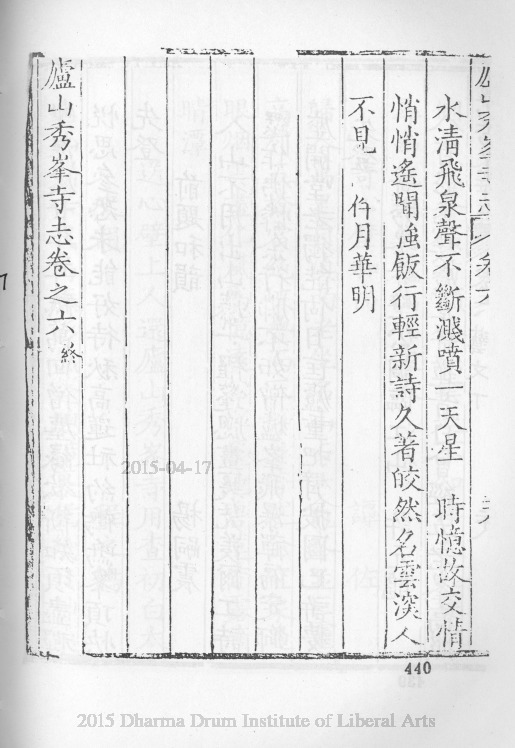 水清飛泉聲不斷濺噴一天星　時憶故交情
悄悄遙聞強飯行輕新詩久著皎然名雲深人
不見　月華明
廬山秀峯寺志卷之六終
440
2015-04-17
2015 Dharma Drum Institute of Liberal Arts